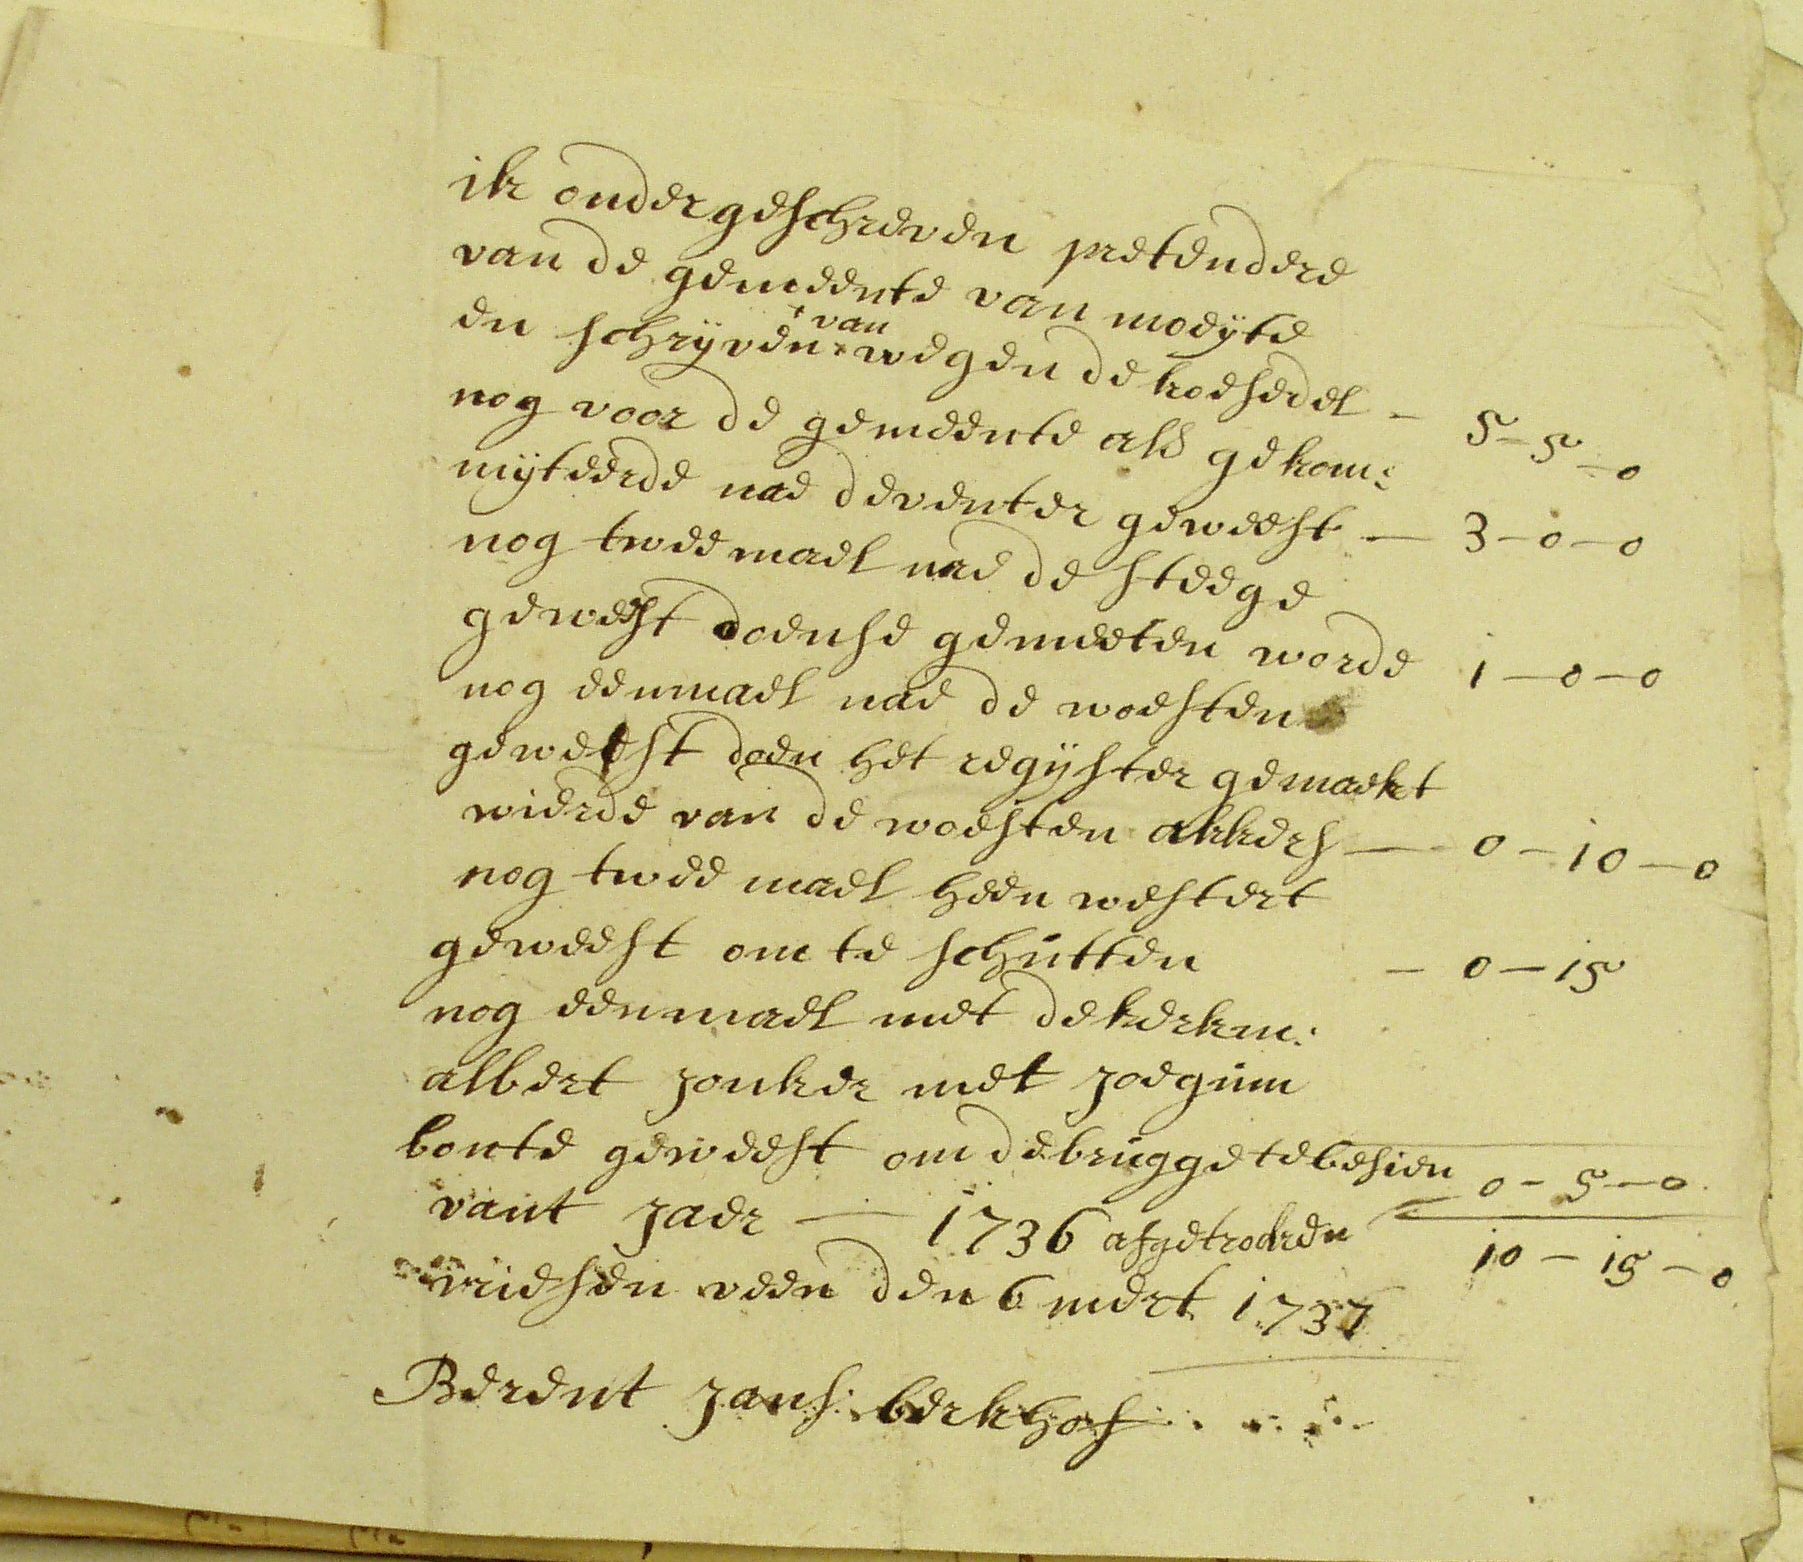 ik ondergeschreven pretendere
van de gemeente van moeÿte
en schrÿven van wegen de koesedel - 5-5-0
nog voor de gemeente als gekom:
mÿteerde nae deventer geweest - 3-0-0
nog twee mael nae de steege
geweest doense gemeeten worde 1-0-0
nog eenmael nae de woesten
geweest doen het regÿster gemaekt
wierde van de woesten akkers - 0-10-0
nog twee mael heen westert
geweest om te schutten - 0-15
nog eenmael met de kerkm:
albert jonker met joegum
bonte geweest om de brugge te besien 0-5-0
vant jaer - 1736 afgetrocken 10-15-0
vriesen veen den 6 mert 1737
Berent jans: berkhof